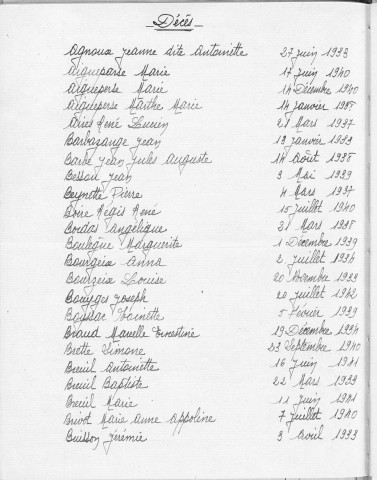 Décès
Agnoux Jeanne dite Antoinette 27 juin 1933
Aigueparse Marie 17 juin 1940
Aigueperse Marie 14 Décembre 1940
Aigueperse Marthe Marie 14 janvier 1935
Aries René Lucien 21 Mars 1937
Barbarange Jean 13 janvier 1933
Barbe Jean Jules Auguste 14 Août 1935
Besson Jean 3 Mai 1939
Beynette Pierre 4 Mars 1937
Boire Régis René 15 juillet 1940
Bordas Angélique 21 Mars 1938
Boulègue Marguerite 1 Décembre 1939
Bourgeix Anna 2 juillet 1936
Bourzeix Louise 20 Novembre 1933
Bouyges Joseph 20 juillet 1942
Boyssac Toinette 5 Février 1939
Braud Marelle Ernestine 19 Décembre 1934
Brette Simone 23 Septembre 1940
Breuil Antoinette 16 juin 1941
Breuil Baptiste 22 Mars 1933
Breuil Marie 11 juin 1941
Brivot Marie Anne Appoline 7 juillet 1940
Buisson Jérémie 3 avril 1933